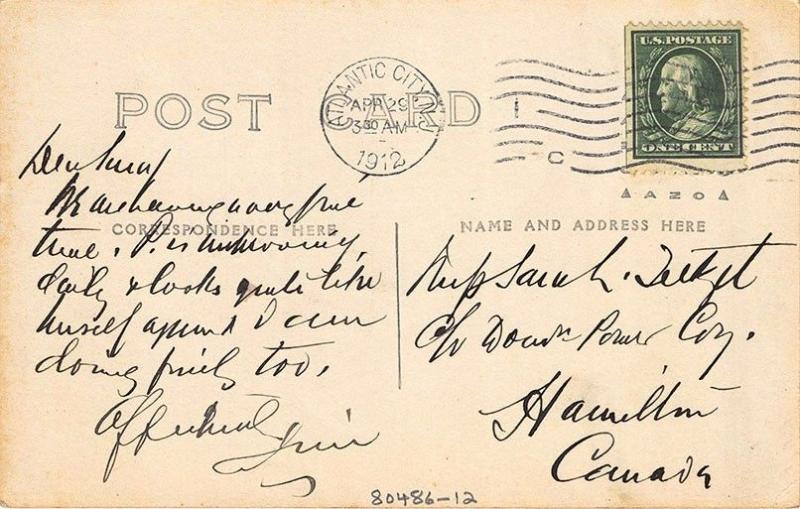 U.S. POSTAGE
ONE CENT
ATLANTIC CITY, N.J.
APR 29
3 30 AM
1912
POST CARD
AZO
CORRESPONDENCE HERE
NAME AND ADDRESS HERE
Dear Sara
We are having a very fine
time. P. is improving
daily & looks quite like
himself again & I am
doing finely too.
Sarah
c/o Power Coy.
Hamilton
Canada
80486-12